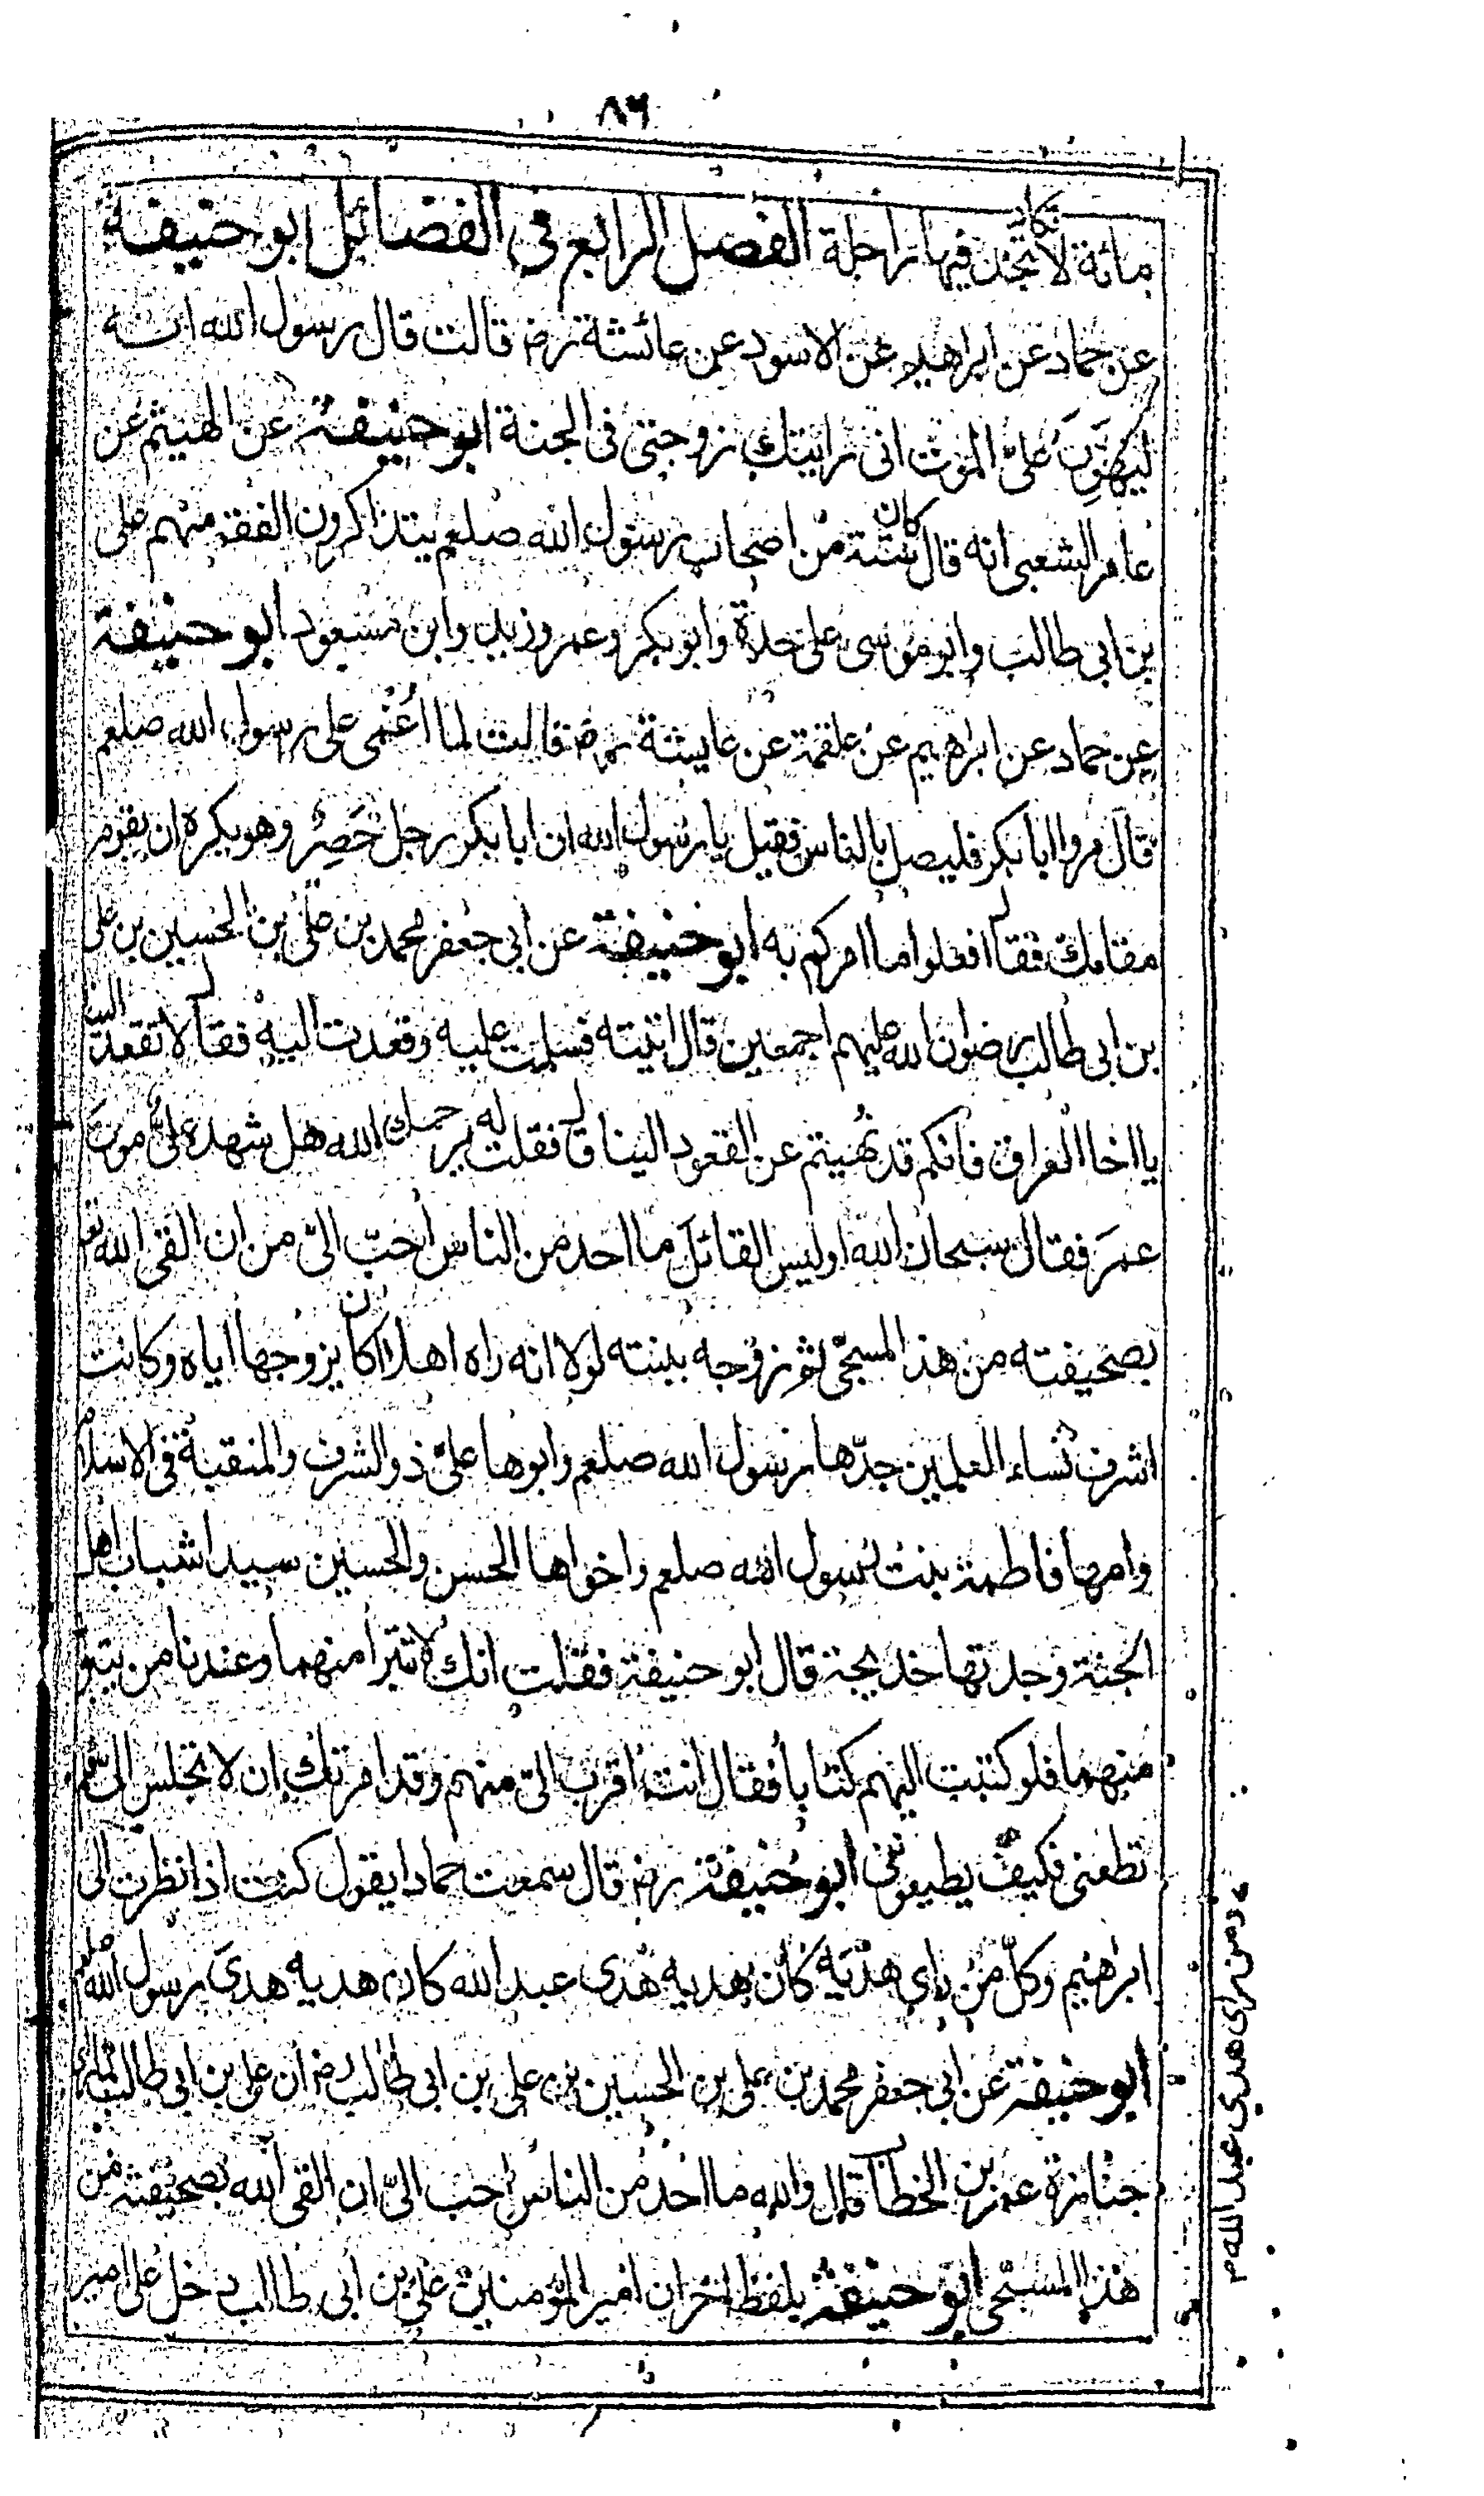 ٨٦
مائة لا تكاد تجد فيها راحلة الفصل الرابع في الفضائل ابو حنيفة
عن حماد عن ابراهيم عن الاسود عن عائشة رضـ قالت قال رسول الله انه
ليهون على الموت اني رايتك زوجتي في الجنة ابو حنيفة عن الهيثم عن
عامر الشعبي انه قال كان ستة من اصحاب رسول الله صلعم يتذاكرون الفقه منهم علي
بن ابي طالب وابو موسى على حدة وابو بكر وعمر وزيد وابن مسعود ابو حنيفة
عن حماد عن ابراهيم عن علقمة عن عايشة رضـ قالت لما اغمي على رسول الله صلعم
قال مروا ابا بكر فليصل بالناس فقيل يا رسول الله ان ابا بكر رجل حصر وهو يكره ان يقوم
مقامك فقال افعلوا ما امركم به ابو حنيفة عن ابي جعفر محمد بن علي بن الحسين بن علي
بن ابي طالب رضوان الله عليهم اجمعين قال اتيته فسلمت عليه وقعدت اليه فقال لا تقعد الينا
يا اخا العراق فانكم قد نهيتم عن القعود الينا قال فقلت له يرحمك الله هل شهد علي موت
عمر فقال سبحان الله اوليس القائل ما احد من الناس احب الي من ان القى الله تع
بصحيفته من هذا المسجى ثم زوجه بنته لولا انه راه اهلا اكان يزوجها اياه وكانت
اشرف نساء العلمين جدها رسول الله صلعم وابوها علي ذو الشرف والمنقبة في الاسلام
وامها فاطمة بنت رسول الله صلعم واخواها الحسن والحسين سيدا شباب اهل
الجنة وجدتها خديجة قال ابو حنيفة فقلت انك لا تتبرا منهما وعندنا من يتبرأ
منهما فلو كتبت اليهم كتابا فقال انت اقرب الي منهم وقد امرتك ان لا تجلس الي فلم
تطعني فكيف يطيعونني ابو حنيفة رضـ قال سمعت حمادا يقول كنت اذا نظرت الى
ابراهيم وكل من راي هديه كان هديه هدي عبد الله كان هديه هدي رسول الله صلعم
ومن راى هدي عبد الله م
ابو حنيفة عن ابي جعفر محمد بن علي بن الحسين بن علي بن ابي طالب رضـ ان علي بن ابي طالب
جنازة عمر بن الخطاب قال والله ما احد من الناس احب الي ان القى الله بصحيفته من
هذا المسجى ابو حنيفة بلفظ اخر ان امير المؤمنين علي بن ابي طالب دخل على امير